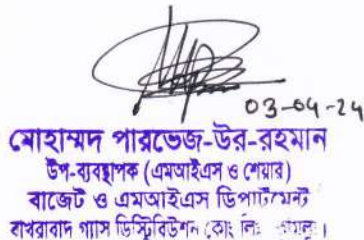 03-04-24
মোহাম্মদ পারভেজ-উর-রহমান
উপ-ব্যবস্থাপক (এমআইএস ও শেয়ার)
বাজেট ও এমআইএস ডিপার্টমেন্ট
বাখরাবাদ গ্যাস ডিস্ট্রিবিউশন কোং লিঃ